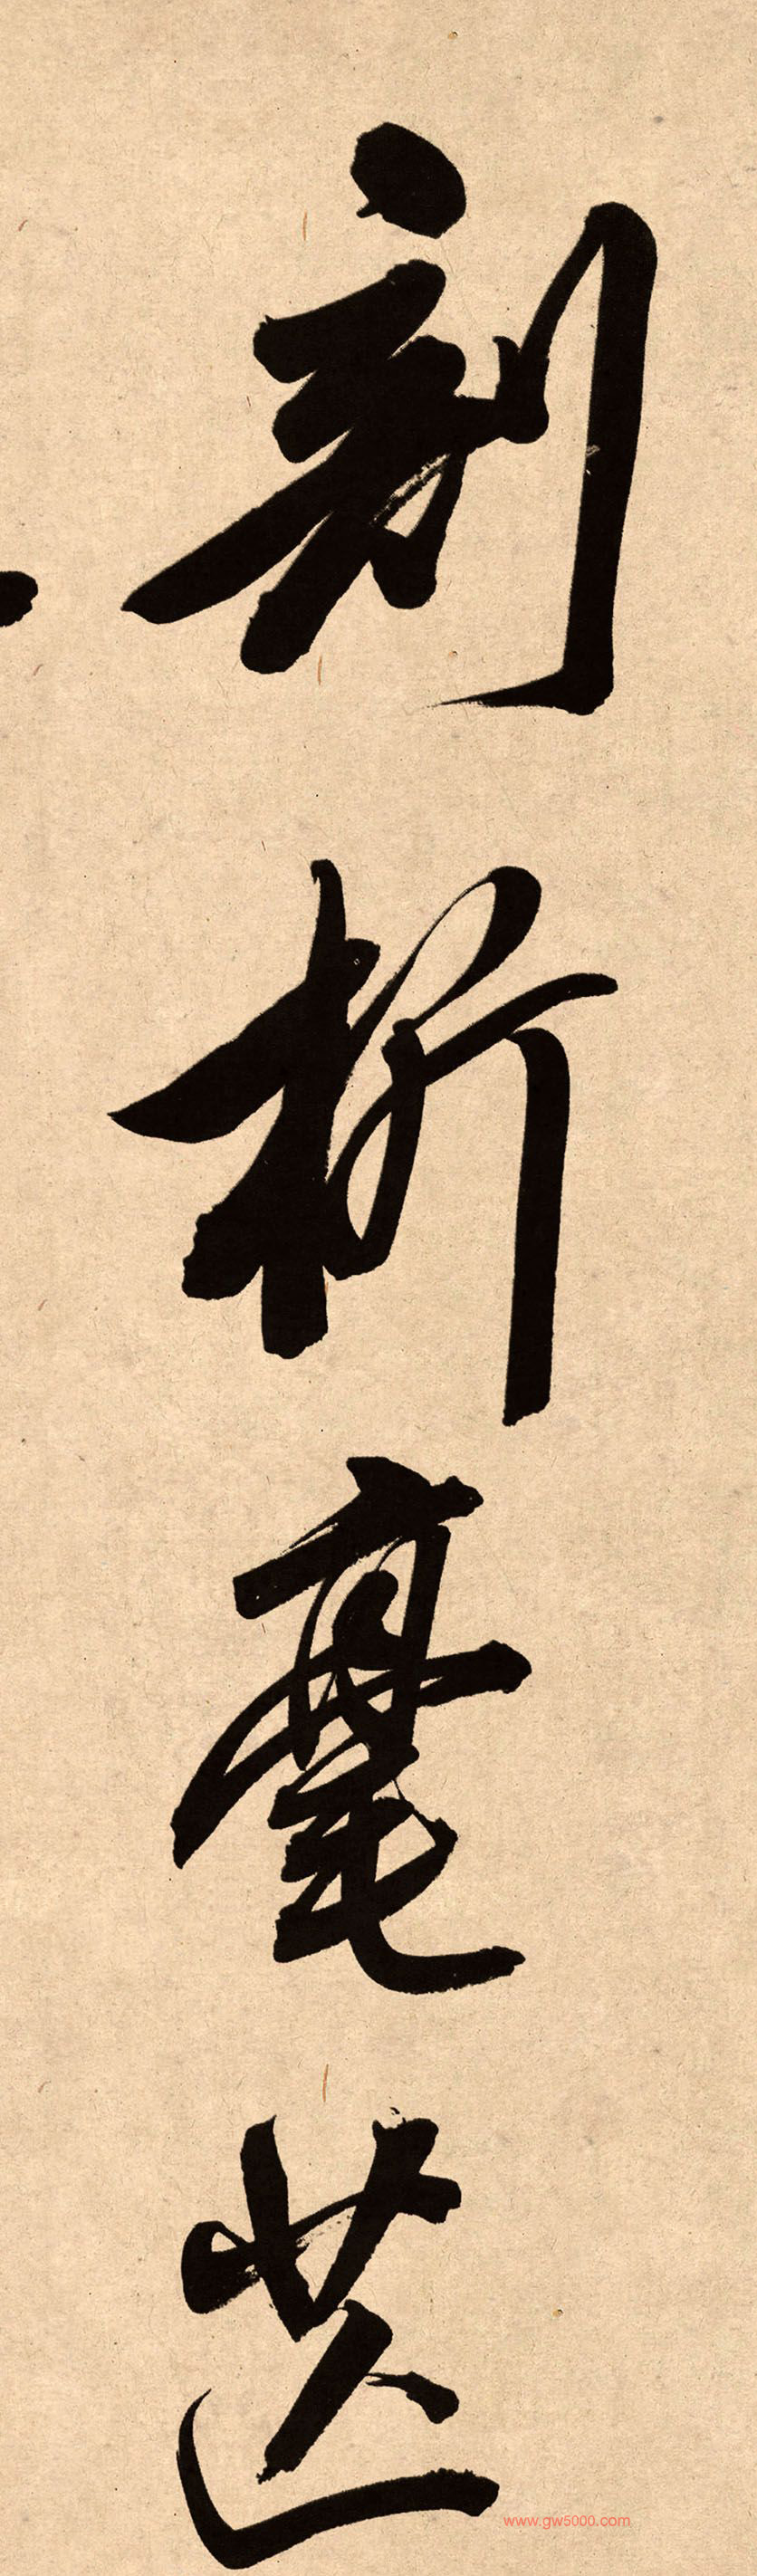 刻析毫芒
www.gw5000.com